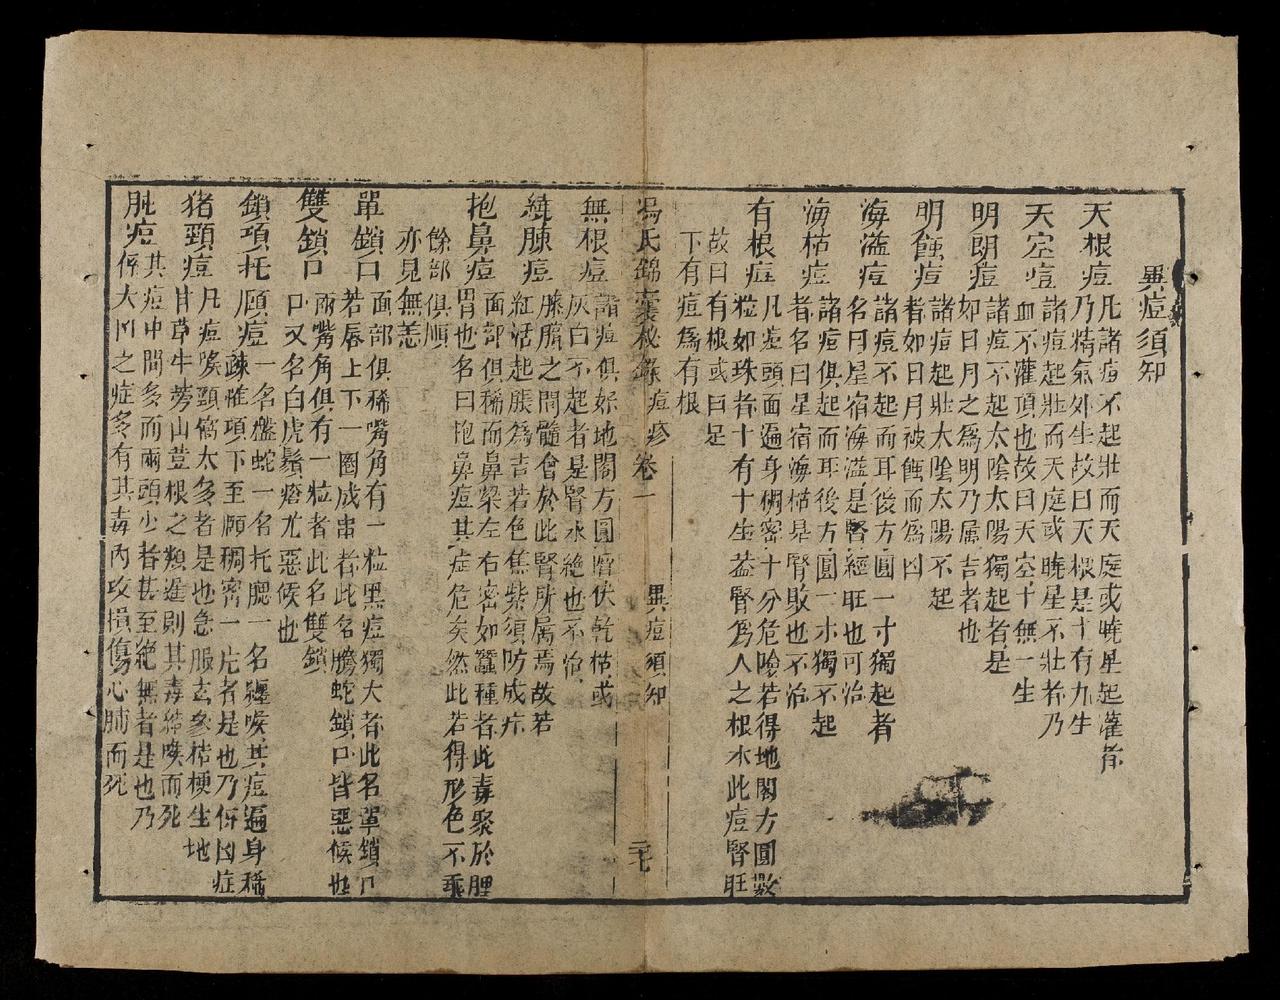 異痘須知
天根痘
凡諸痘不起壯而天庭或曉星起灌者
乃精氣外生故曰天根是十有九生
天空痘
諸痘起壯而天庭或曉星不壯者乃
血不灌頂也故曰天空十無一生
明朗痘
諸痘不起太陰太陽獨起者是
如日月之爲明乃属吉者也
明蝕痘
諸痘起壯太陰太陽不起
者如日月被蝕而爲凶
海溢痘
諸痘不起而耳後方圓一寸獨起者
名曰星宿海溢是腎經旺也可治
海枯痘
諸痘俱起而耳後方圓一寸獨不起
者名曰星宿海枯是腎敗也不治
有根痘
凡痘頭面遍身稠密十分危險若得地閣方圓數
粒如珠者十有十生葢腎爲人之根水此痘腎旺
故曰有根或曰足
下有痘爲有根
馮氏錦囊秘錄 痘疹 卷一 異痘須知 二七
無根痘
諸痘俱好地閣方圓暗伏乾枯或
灰白不起者是腎水絶也不治
纏腰痘
膝臍之間髓會於此腎所属焉故若
紅活起脹爲吉若色焦紫須防成疔
抱鼻痘
面部俱稀而鼻梁左右密如蠶種者此毒聚於脾
胃也名曰抱鼻痘其症危矣然此若得形色不乖
餘部俱順
亦見無恙
單鎖口
面部俱稀嘴角有一粒黑痘獨大者此名單鎖口
若唇上下一圈成串者此名騰蛇鎖口皆惡候也
雙鎖口
兩嘴角俱有一粒者此名雙鎖
口又名白虎鬚痘尤惡候也
鎖項托頤痘
一名盤蛇一名托腮一名纏喉其痘遍身稀
疎惟項下至頤稠密一片者是也乃俱凶症
猪頸痘
凡痘喉頸窩太多者是也急服玄參桔梗生地
甘草牛蒡山荳根之類遲則其毒纏喉而死
肶痘
其痘中間多而兩頭少者甚至絶無者是也乃
係大凶之症多有其毒內攻損傷心肺而死